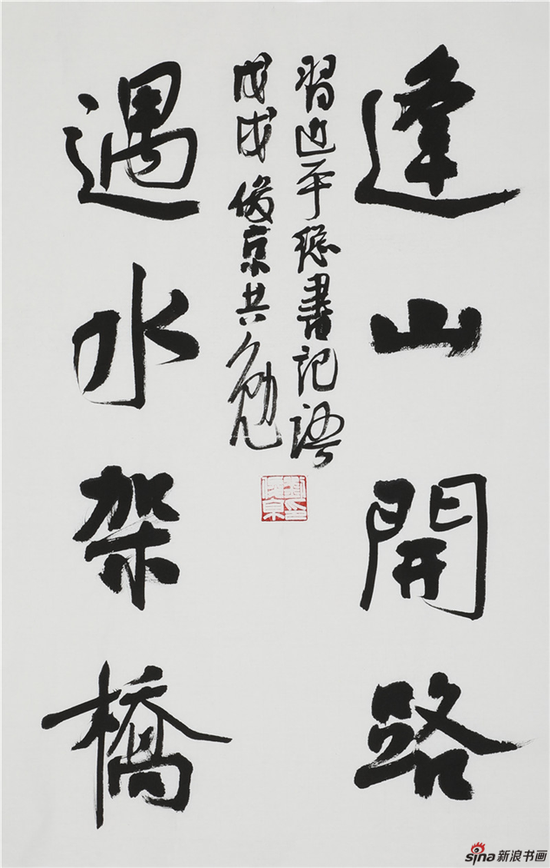 逢山開路
習近平總書記語
戊戌俊京共勉
遇水架橋
sina新浪书画